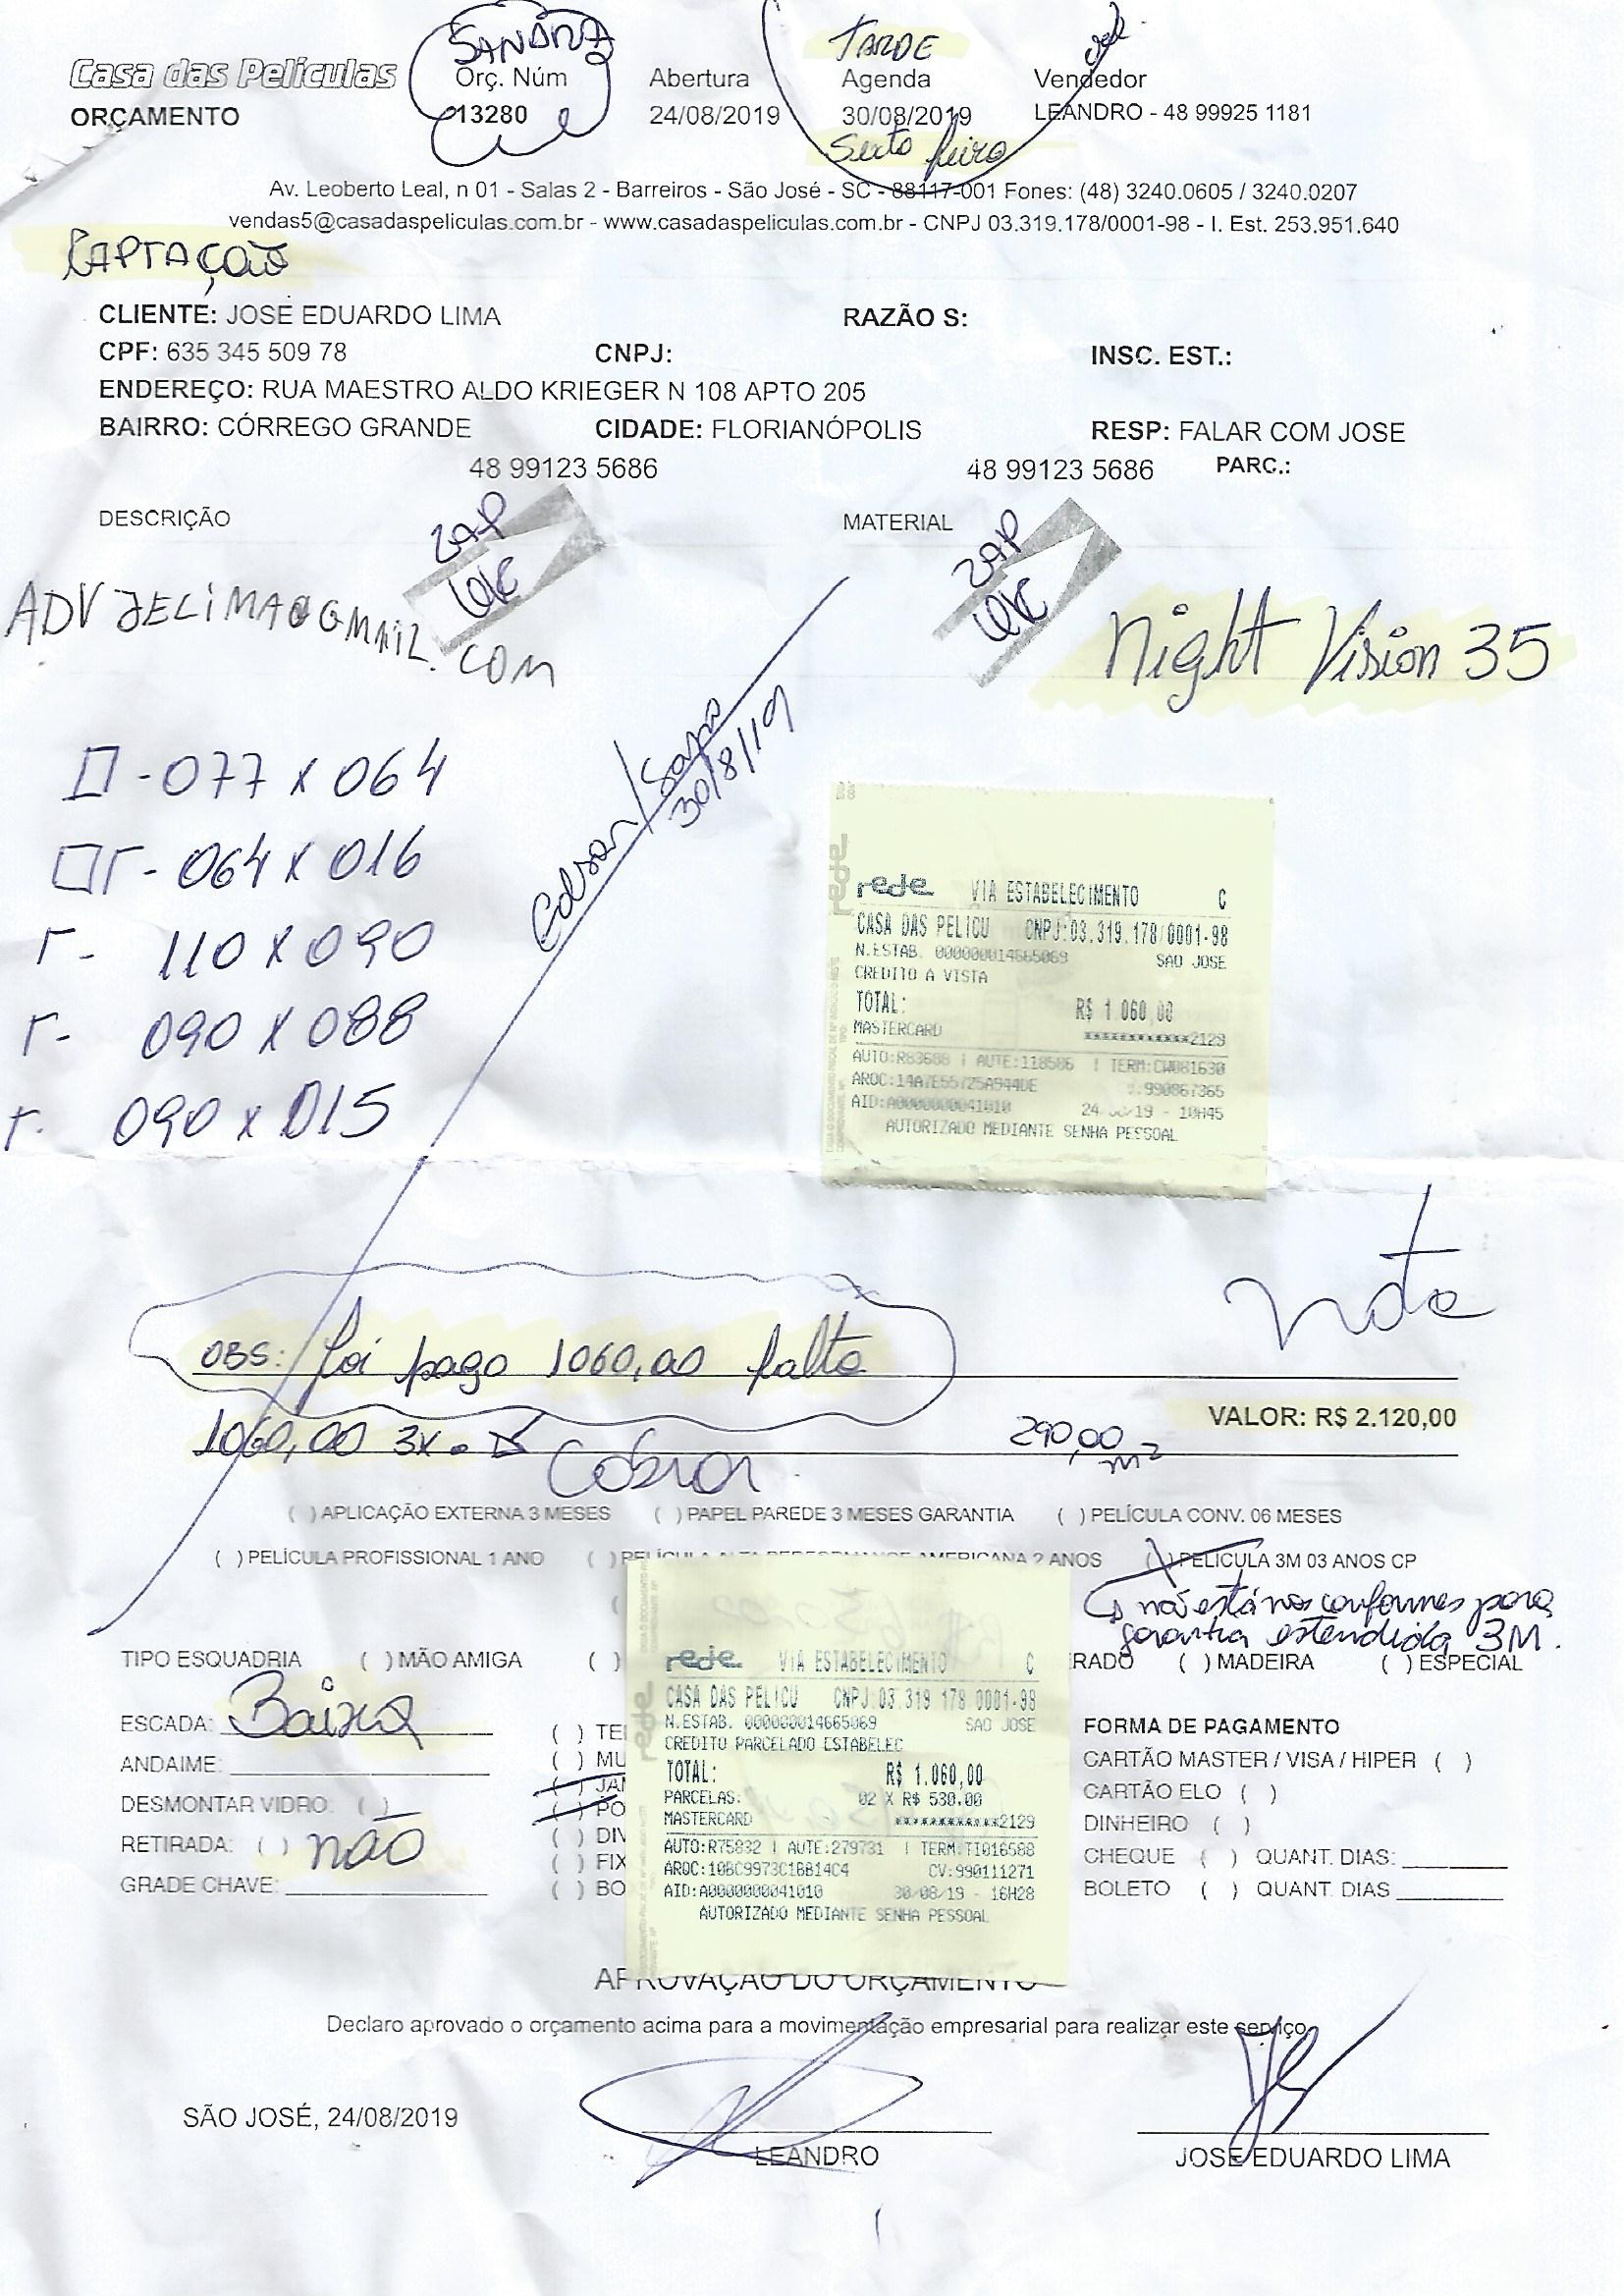 SANDRA
TARDE
Casa das Películas
Orç. Núm Abertura Agenda Vendedor
ORÇAMENTO 13280 24/08/2019 30/08/2019 LEANDRO - 48 99925 1181
Sexta feira
Av. Leoberto Leal, n 01 - Salas 2 - Barreiros - São José - SC - 88117-001 Fones: (48) 3240.0605 / 3240.0207
vendas5@casadaspeliculas.com.br - www.casadaspeliculas.com.br - CNPJ 03.319.178/0001-98 - I. Est. 253.951.640
CAPTAÇÃO
CLIENTE: JOSE EDUARDO LIMA RAZÃO S:
CPF: 635 345 509 78 CNPJ: INSC. EST.:
ENDEREÇO: RUA MAESTRO ALDO KRIEGER N 108 APTO 205
BAIRRO: CÓRREGO GRANDE CIDADE: FLORIANÓPOLIS RESP: FALAR COM JOSE
48 99123 5686 48 99123 5686 PARC.:
DESCRIÇÃO MATERIAL
ZAP ZAP
OK OK
ADVJELIMA@GMAIL.COM
Night Vision 35
30/8/19
- 077 x 064
- 064 x 016
- 110 x 090
- 090 x 088
- 090 x 015
rede VIA ESTABELECIMENTO C
CASA DAS PELICU CNPJ:03.319.178/0001-98
N.ESTAB. 000000014665069 SAO JOSE
CREDITO A VISTA
TOTAL: R$ 1.060,00
MASTERCARD ************2129
AUTO:R83688 | AUTE:118506 | TERM:CW081630
990867365
AID:A0000000041010 /19 - 10H45
AUTORIZADO MEDIANTE SENHA PESSOAL
Nota
OBS: foi pago 1060,00 falta
1060,00 3x Cobrar
290,00 m²
VALOR: R$ 2.120,00
( ) APLICAÇÃO EXTERNA 3 MESES ( ) PAPEL PAREDE 3 MESES GARANTIA ( ) PELÍCULA CONV. 06 MESES
( ) PELÍCULA PROFISSIONAL 1 ANO ( ) PELÍCULA ALTA PERFORMANCE AMERICANA 2 ANOS ( ) PELICULA 3M 03 ANOS CP
não está nos conformes para
garantia estendida 3M.
TIPO ESQUADRIA ( ) MÃO AMIGA ( ) RADO ( ) MADEIRA ( ) ESPECIAL
ESCADA: Baixa
ANDAIME:
DESMONTAR VIDRO: ( )
RETIRADA: ( ) não
GRADE CHAVE:
( ) TE
( ) MU
( ) JAN
( ) PO
( ) DIV
( ) FIX
( ) BO
rede VIA ESTABELECIMENTO C
CASA DAS PELICU CNPJ:03.319.178 0001-98
N.ESTAB. 000000014665069 SAO JOSE
CREDITO PARCELADO ESTABELEC
TOTAL: R$ 1.060,00
PARCELAS: 02 X R$ 530.00
MASTERCARD ************2129
AUTO:R75832 | AUTE:279731 | TERM:TI016588
AROC:10BC9973C16814C4 CV:990111271
AID:A0000000041010 30/08/19 - 16H28
AUTORIZADO MEDIANTE SENHA PESSOAL
FORMA DE PAGAMENTO
CARTÃO MASTER / VISA / HIPER ( )
CARTÃO ELO ( )
DINHEIRO ( )
CHEQUE ( ) QUANT. DIAS:
BOLETO ( ) QUANT. DIAS
APROVAÇÃO DO ORÇAMENTO
Declaro aprovado o orçamento acima para a movimentação empresarial para realizar este serviço.
SÃO JOSÉ, 24/08/2019
LEANDRO JOSE EDUARDO LIMA